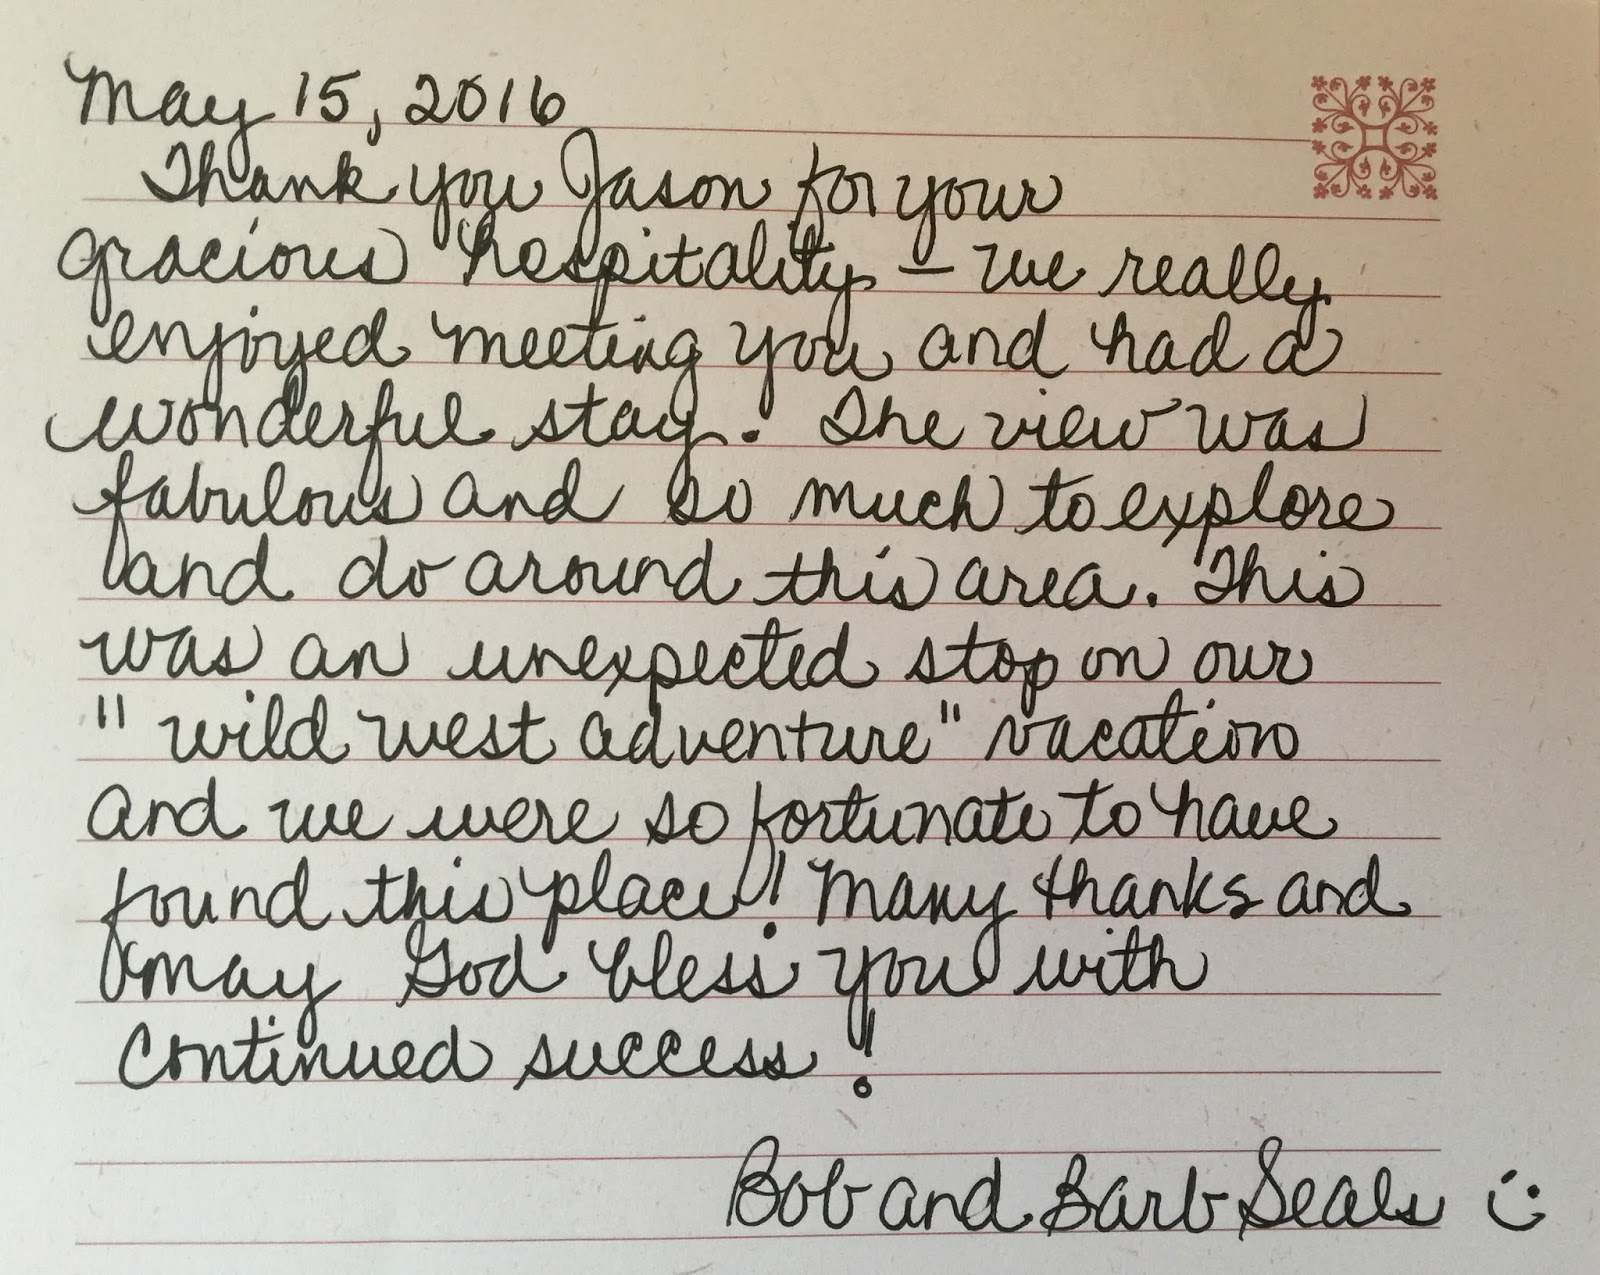 May 15, 2016
Thank you Jason for your
gracious hospitality - we really
enjoyed meeting you and had a
wonderful stay. The view was
fabulous and so much to explore
and do around this area. This
was an unexpected stop on our
"wild west adventure" vacation
and we were so fortunate to have
found this place! Many thanks and
may God bless you with
continued success!
Bob and Barb Seals :)